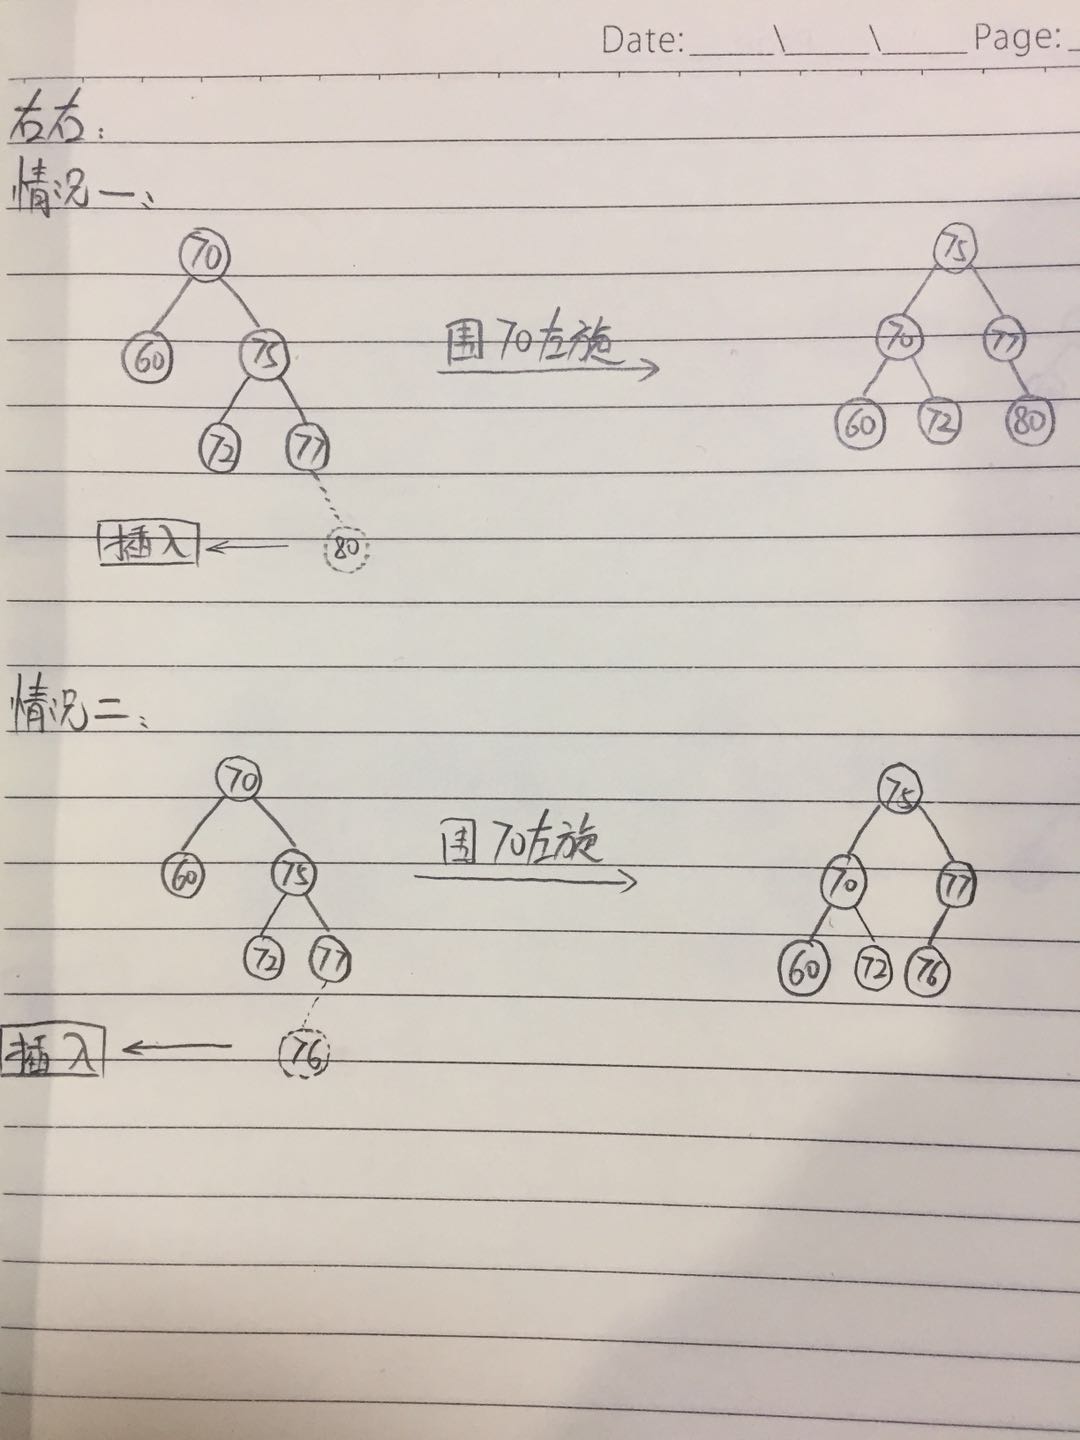 Date: \ \ Page:
右右:
情况一、
70
75
60 75
围70左旋
70 77
72 77
60 72 80
插入 80
情况二、
70
75
围70左旋
60 75
70 77
72 77
60 72 76
插入 76